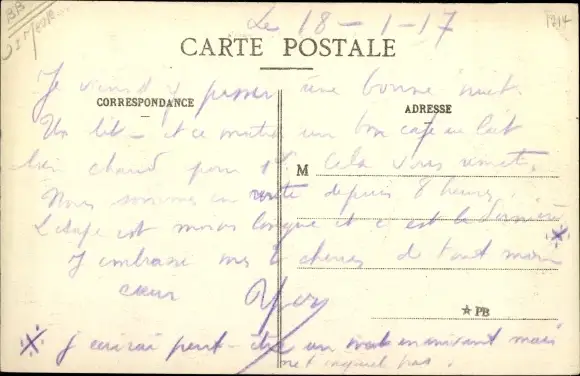 Le 18-1-17
1214
CARTE POSTALE
CORRESPONDANCE
ADRESSE
M
PB
Je viens d'y passer une bonne nuit.
Un lit - et ce matin un bon café au lait
bien chaud pour 1f. Cela vous remet.
Nous sommes en route depuis 8 heures
L'étape est moins longue et c'est la dernière
J'embrasse mes chéries de tout mon
cœur
J'écrirai peut-être un mot en arrivant mais
pas.